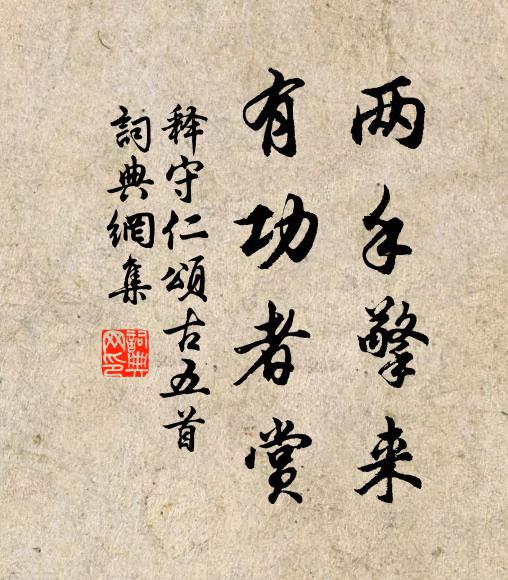 两手擎来
有功者赏
释守仁颂古五首
詞典網集
詞典
网印